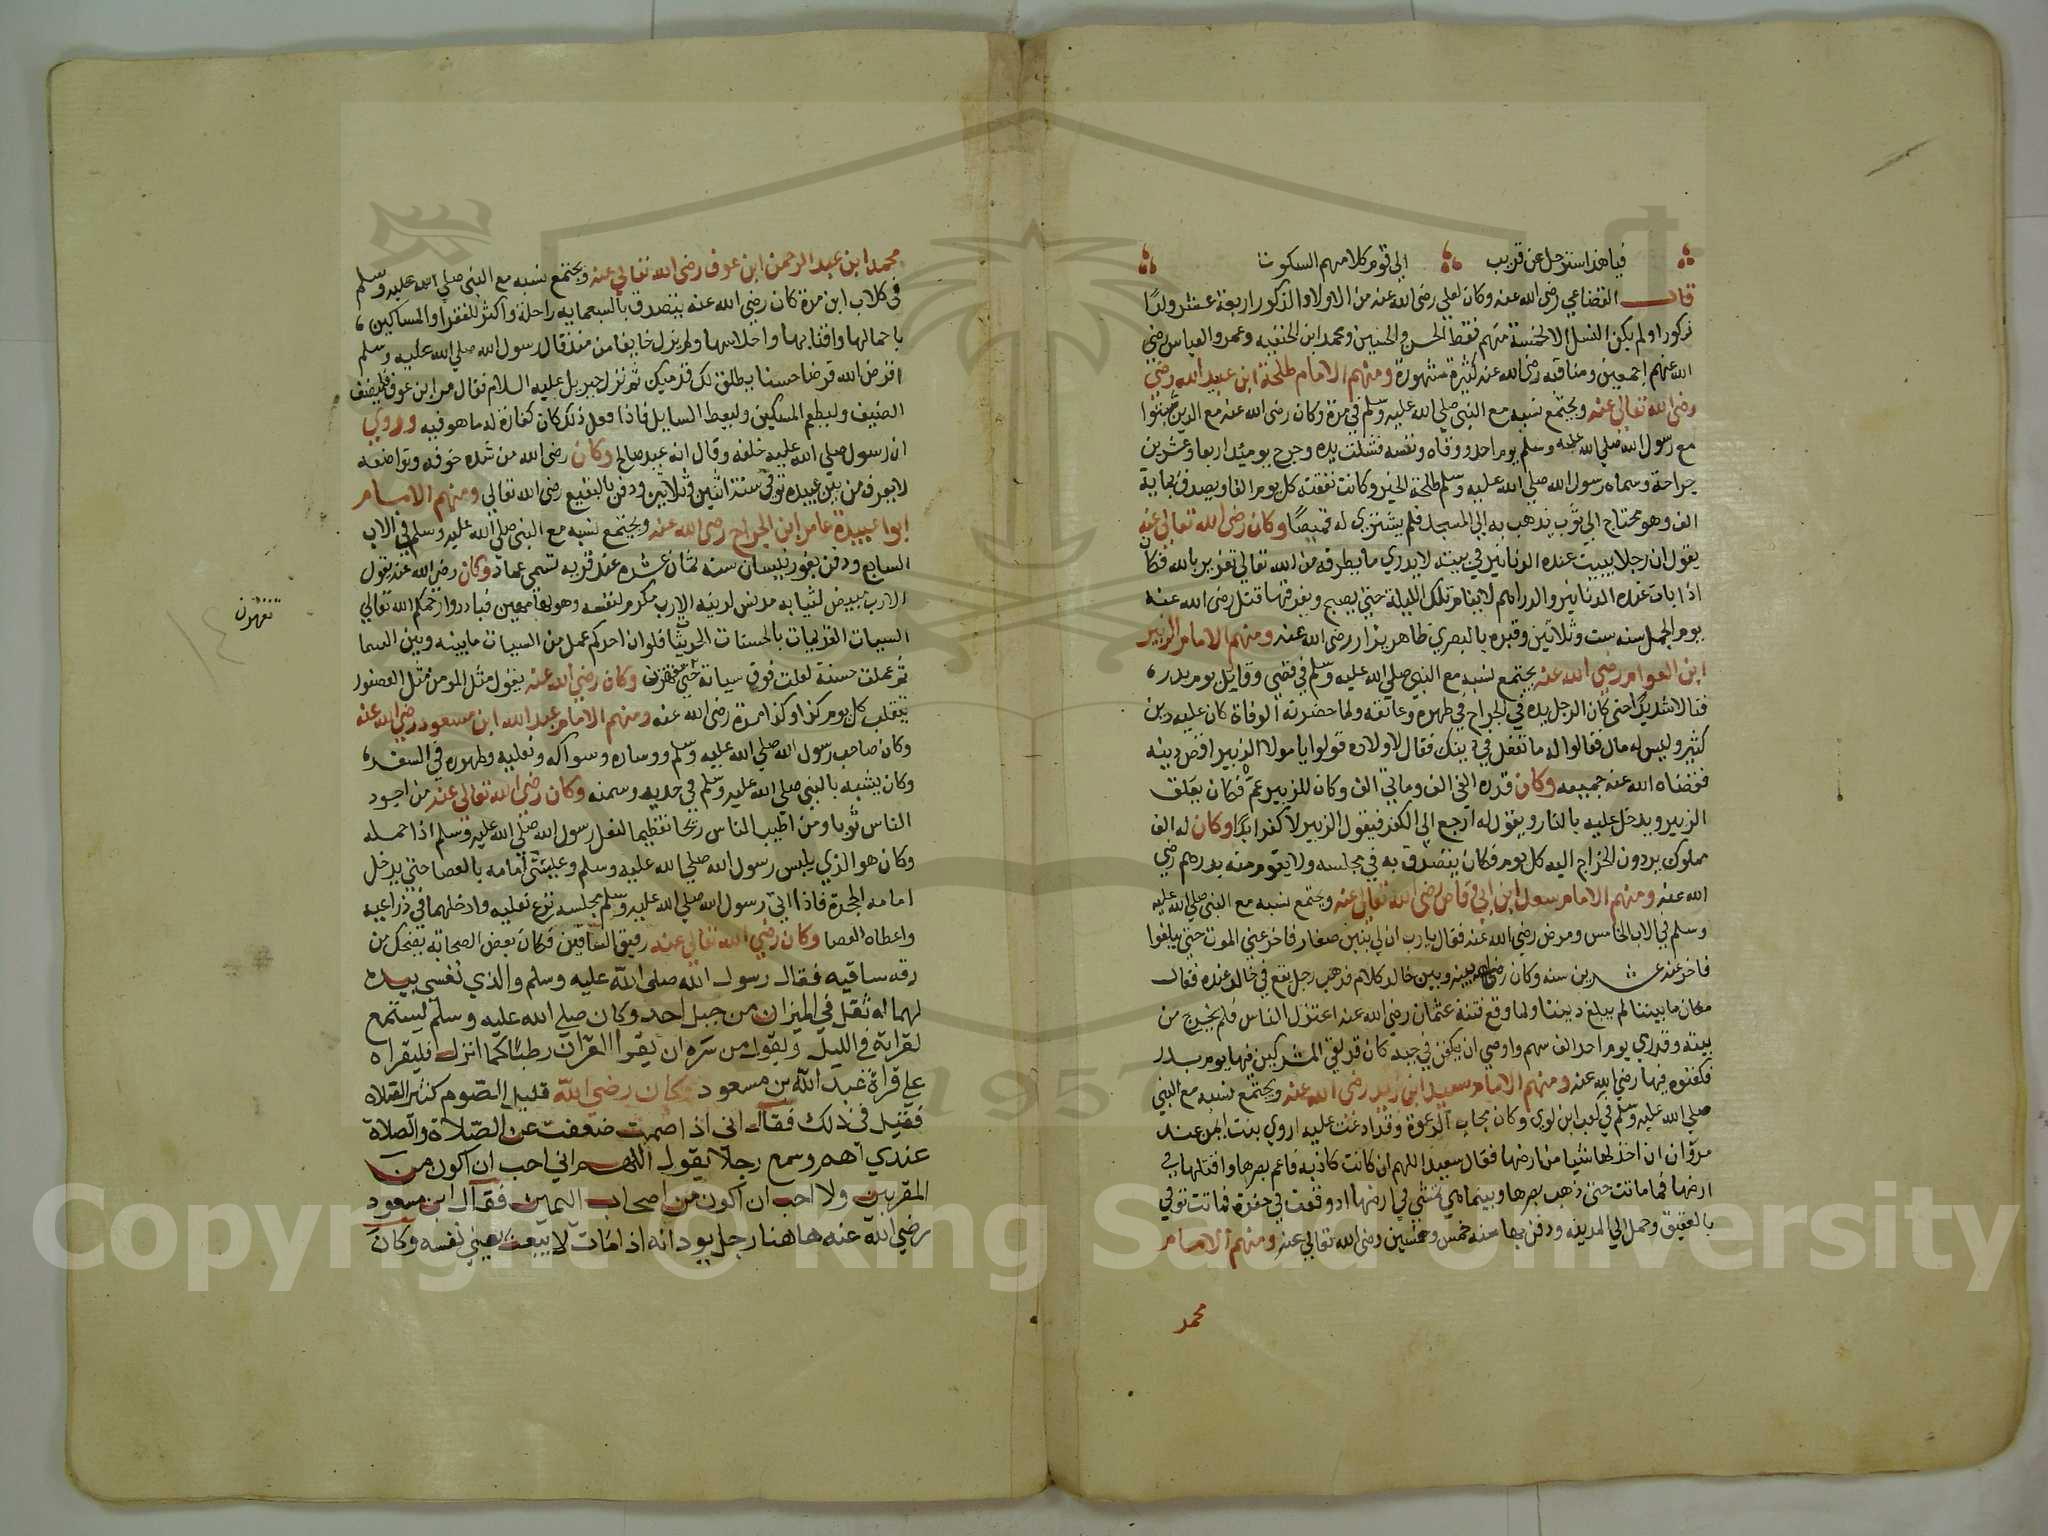 فيا هذا استرحل عن قريب الى قوم كلامهم السكوت
قال القضاعي رضي الله عنه وكان لعلي رضي الله عنه من الاولاد الذكور اربعة عشر ولدا
ذكورا ولم يكن النسل الا لخمسة منهم فقط الحسن والحسين ومحمد ابن الحنفيه وعمر والعباس رضي
الله عنهم اجمعين ومناقبه رضي الله عنه كثيرة مشهورة ومنهم الامام طلحة ابن عبيد الله رضي
رضي الله تعالي عنه ويجتمع نسبه مع النبي صلي الله عليه وسلم في مرة وكان رضي الله عنه مع الذين
مع رسول الله صلي الله عليه وسلم يوم احد ووقاه ونفسه فشلت يده وجرح يوميذ اربعا وعشرين
جراحة وسماه رسول الله صلي الله عليه وسلم طلحة الخير وكانت نفقته كل يوم الفا ويصدق بماية
الف وهو محتاج الي ثوب يذهب به الي المسجد فلم يشتري له قميصا وكان رضي الله تعالي عنه
يقول ان رجلا يبيت عنده الدنانير في بيته لا يدري ما يطرقه من الله تعالي لغرير بالله فكان
اذا بات عنده الدنانير والدراهم لا ينام تلك الليلة حتي يصبح ويفرقها قتل رضي الله عنه
يوم الجمل سنه ست وثلاثين وقبره بالبصرة ظاهر يزار رضي الله عنه ومنهم الامام الزبير
ابن العوام رضي الله عنه يجتمع نسبه مع النبي صلي الله عليه وسلم في قصي وقاتل يوم بدر
قتالا شديدا حتي كان الرجل يده في الجراح في ظهره وعاتقه ولما حضرته الوفاة كان عليه دين
كثير وليس له مال فقالوا له ما تفعل في دينك فقال لاولاده قولوا يا مولا الزبير اقض دينه
فقضاه الله عنه جميعه وكان قدره الفي الف ومايتي الف وكان للزبير عم فكان يعلق
الزبير ويدخل عليه بالنار ويقول له ارجع الي الكفر فيقول الزبير لا كفر ابدا وكان له الف
مملوك يردون الخراج اليه كل يوم فكان يتصدق به في مجلسه ولا يقوم منه بدرهم رضي
الله عنه ومنهم الامام سعد ابن ابي وقاص رضي الله تعالي عنه ويجتمع نسبه مع النبي صلي الله عليه
وسلم في الاب الخامس ومرض رضي الله عنه فقال يا رب ان لي بنين صغار فاخر عني الموت حتي يبلغوا
فاخر عنه عشرين سنه وكان بينه وبين خالد كلام فذهب رجل يقع في خالد عنده فقال
مكان ما بيننا لم يبلغ ديننا ولما وقع فتنة عثمان رضي الله عنه اعتزل الناس فلم يخرج من
بيته وقد رمي يوم احد الف سهم واوصي ان يكفن في جبه كان قد لقي المشركين فيها يوم بدر
فكفنوه فيها رضي الله عنه ومنهم الامام سعيد ابن زيد رضي الله عنه ويجتمع نسبه مع النبي
صلي الله عليه وسلم في كعب ابن لوي وكان مجاب الدعوة وقد ادعت عليه اروي بنت عند
مروان ان اخذ لها شيا من ارضها فقال سعيد اللهم ان كانت كاذبه فاعم بصرها واقتلها في
ارضها فما ماتت حتي ذهب بصرها وبينما هي تمشي في ارضها اذ وقعت في حفرة فماتت توفي
بالعقيق وحمل الي المدينه ودفن بها سنه خمس وخمسين رضي الله تعالي عنه ومنهم الامام
محمد
محمد ابن عبد الرحمن ابن عوف رضي الله تعالي عنه ويجتمع نسبه مع النبي صلي الله عليه وسلم
في كلاب ابن مرة كان رضي الله عنه يتصدق بالسبعمايه راحلة واكثر للفقرا والمساكين
باحمالها واقتابها واحلاسها ولم يزل خايفا من منذ قال رسول الله صلي الله عليه وسلم
اقرض الله قرضا حسنا يطلق لك قدميك ثم نزل جبريل عليه السلام فقال مر ابن عوف فليضف
الضيف وليطعم المسكين وليعط السايل فاذا فعل ذلك كان كفارة له ما هو فيه وروي
ان رسول صلي الله عليه خلفه وقال انه عبد صالح وكان رضي الله من شدة خوفه وتواضعه
لا يعرف من بين عبيده توفي سنة اثنين وثلاثين ودفن بالبقيع رضي الله تعالي ومنهم الامام
ابوا عبيدة عامر ابن الجراح رضي الله عنه ويجتمع نسبه مع النبي صلي الله عليه وسلم في الاب
السابع ودفن بغور بيسان سنه ثمان عشره عند قريه تسمي عمادا وكان رضي الله عنه يقول
الا رب مبيض لثيابه مدنس لدينه الا رب مكرم لنفسه وهو لها مهين فبادروا رحمكم الله تعالي
السيات القديمات بالحسنات الحديثا فلو ان احدكم عمل من السيات ما بينه وبين السما
ثم عملت حسنة لعلت فوق سياته حتي تقهرن وكان رضي الله عنه يقول مثل المومن مثل العصفور
يتقلب كل يوم كذا وكذا مرة رضي الله عنه ومنهم الامام عبد الله ابن مسعود رضي الله عنه
وكان صاحب رسول الله صلي الله عليه وسلم ووساده وسواكه ونعليه وطهوره في السفر
وكان يشبه بالنبي صلي الله عليه وسلم في هديه وسمته وكان رضي الله تعالي عنه من اجود
الناس ثوبا ومن اطيب الناس ريحا تعظيما لنعل رسول الله صلي الله عليه وسلم اذا حمله
وكان هو الذي يلبس رسول الله صلي الله عليه وسلم ويمشي امامه بالعصا حتي يدخل
امامه الحجرة فاذا اتي رسول الله صلي الله عليه وسلم مجلسه نزع نعليه وادخلهما في ذراعيه
واعطاه العصا وكان رضي الله تعالي عنه رقيق الساقين فكان بعض الصحابه يضحك من
رقه ساقيه فقال رسول الله صلي الله عليه وسلم والذي نفسي بيده
لهما له ثقل في الميزان من جبل احد وكان صلي الله عليه وسلم يستمع
لقرآته في الليل ويقول من سره ان يقرا القرآن رطبا كما انزل فليقراه
علي قراة عبد الله بن مسعود وكان رضي الله قليل الصوم كثير الصلاه
فقيل في ذلك فقال اني اذا صمت ضعفت عن الصلاة والصلاة
عندي اهم وسمع رجلا يقول اللهم اني احب ان اكون من
المقربين ولا احب ان اكون من اصحاب اليمين فقال ابن مسعود
رضي الله عنه هاهنا رجل يود انه اذا مات لا يبعث يعني نفسه وكان
تقهرن
١٤
Copyright © King Saud University
1957